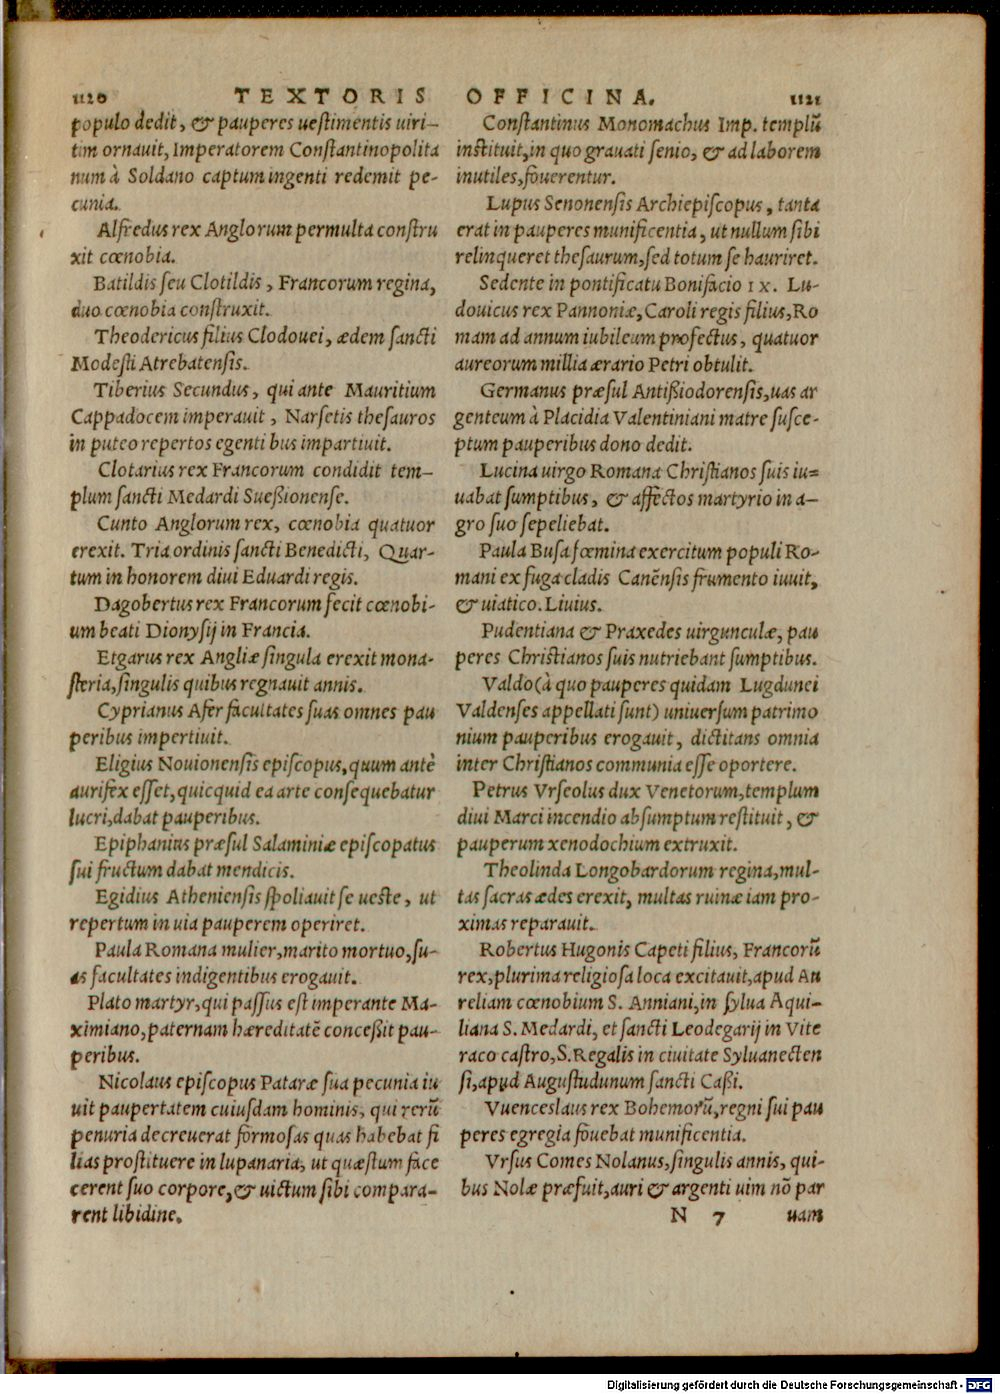 1120 TEXTORIS OFFICINA. 1121
populo dedit, & pauperes uestimentis uiri-
tim ornauit, Imperatorem Constantinopolita
num à Soldano captum ingenti redemit pe-
cunia.
Alfredus rex Anglorum permulta constru
xit cœnobia.
Batildis seu Clotildis, Francorum regina,
duo cœnobia construxit.
Theodericus filius Clodouei, ædem sancti
Modesti Atrebatensis.
Tiberius Secundus, qui ante Mauritium
Cappadocem imperauit, Narsetis thesauros
in puteo repertos egenti bus impartiuit.
Clotarius rex Francorum condidit tem-
plum sancti Medardi Sueßionense.
Cunto Anglorum rex, cœnobia quatuor
erexit. Tria ordinis sancti Benedicti, Quar-
tum in honorem diui Eduardi regis.
Dagobertus rex Francorum fecit cœnobi-
um beati Dionysij in Francia.
Etgarus rex Angliæ singula erexit mona-
steria, singulis quibus regnauit annis.
Cyprianus Afer facultates suas omnes pau
peribus impertiuit.
Eligius Nouionensis episcopus, quum antè
aurifex esset, quicquid ea arte consequebatur
lucri, dabat pauperibus.
Epiphanius præsul Salaminiæ episcopatus
sui fructum dabat mendicis.
Egidius Atheniensis spoliauit se ueste, ut
repertum in uia pauperem operiret.
Paula Romana mulier, marito mortuo, su-
as facultates indigentibus erogauit.
Plato martyr, qui passus est imperante Ma-
ximiano, paternam hæreditatē conceßit pau-
peribus.
Nicolaus episcopus Pataræ sua pecunia iu
uit paupertatem cuiusdam hominis, qui rerū
penuria decreuerat formosas quas habebat fi
lias prostituere in lupanaria, ut quæstum face
cerent suo corpore, & uictum sibi compara-
rent libidine.
Constantinus Monomachus Imp. templū
instituit, in quo grauati senio, & ad laborem
inutiles, fouerentur.
Lupus Senonensis Archiepiscopus, tanta
erat in pauperes munificentia, ut nullum sibi
relinqueret thesaurum, sed totum se hauriret.
Sedente in pontificatu Bonifacio IX. Lu-
douicus rex Pannoniæ, Caroli regis filius, Ro
mam ad annum iubileum profectus, quatuor
aureorum millia ærario Petri obtulit.
Germanus præsul Antißiodorensis, uas ar
genteum à Placidia Valentiniani matre susce-
ptum pauperibus dono dedit.
Lucina uirgo Romana Christianos suis iu=
uabat sumptibus, & affectos martyrio in a-
gro suo sepeliebat.
Paula Busa fœmina exercitum populi Ro-
mani ex fuga cladis Canēnsis frumento iuuit,
& uiatico. Liuius.
Pudentiana & Praxedes uirgunculæ, pau
peres Christianos suis nutriebant sumptibus.
Valdo (à quo pauperes quidam Lugdunei
Valdenses appellati sunt) uniuersum patrimo
nium pauperibus erogauit, dictitans omnia
inter Christianos communia esse oportere.
Petrus Vrseolus dux Venetorum, templum
diui Marci incendio absumptum restituit, &
pauperum xenodochium extruxit.
Theolinda Longobardorum regina, mul-
tas sacras ædes erexit, multas ruinæ iam pro-
ximas reparauit.
Robertus Hugonis Capeti filius, Francorū
rex, plurima religiosa loca excitauit, apud Au
reliam cœnobium S. Anniani, in sylua Aqui-
liana S. Medardi, et sancti Leodegarij in Vite
raco castro, S. Regalis in ciuitate Syluanecten
si, apud Augustudunum sancti Caßi.
Vuenceslaus rex Bohemorū, regni sui pau
peres egregia fouebat munificentia.
Vrsus Comes Nolanus, singulis annis, qui-
bus Nolæ præfuit, auri & argenti uim nō par
N 7 uam
Digitalisierung gefördert durch die Deutsche Forschungsgemeinschaft - DFG